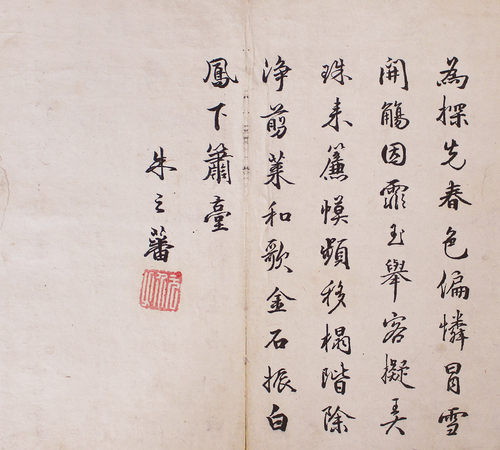 為探先春色偏憐冒雪
開觴因霏玉舉容擬弄
珠来簾幙頻移榻階除
浄剪萊和歌金石振白
鳳下簫臺
朱之蕃